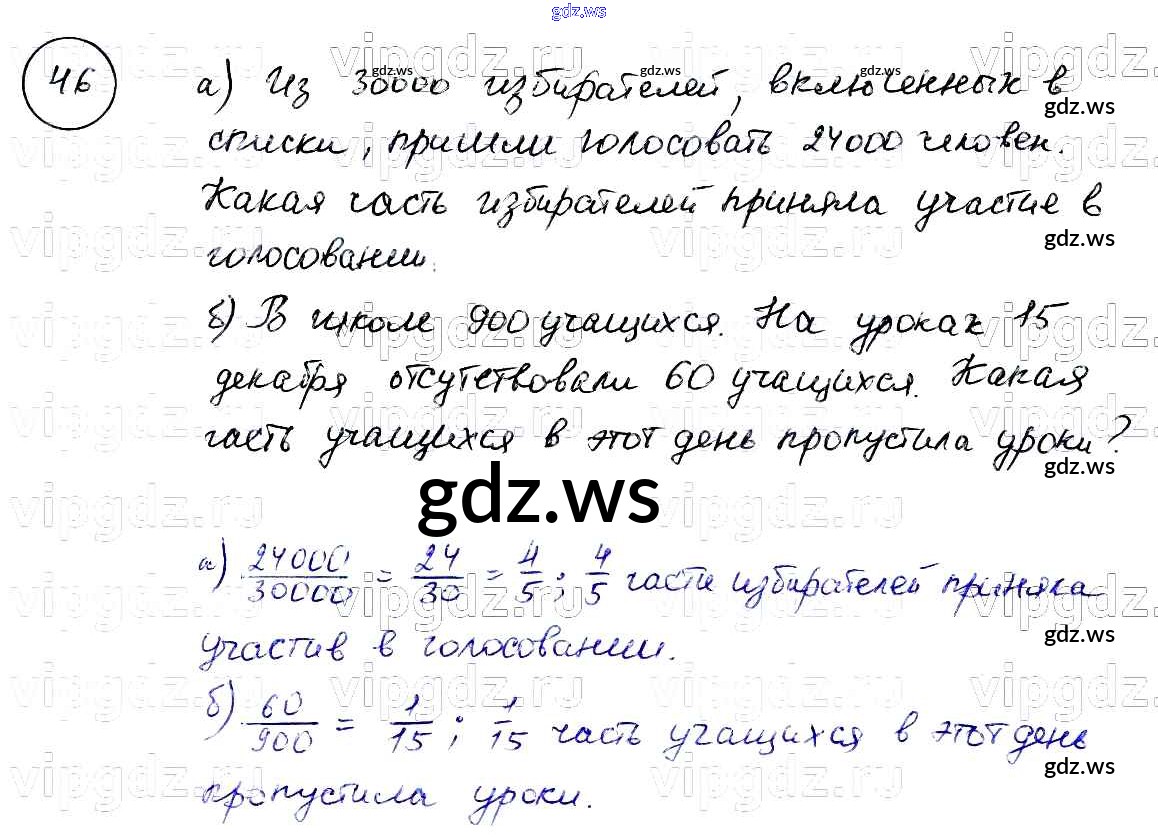 gdz.ws
46
а) Из 30000 избирателей, включенных в
списки, пришли голосовать 24000 человек.
Какая часть избирателей приняла участие в
голосовании.
б) В школе 900 учащихся. На уроках 15
декабря отсутствовали 60 учащихся. Какая
часть учащихся в этот день пропустила уроки?
gdz.ws
а) 24000/30000 = 24/30 = 4/5; 4/5 части избирателей приняла
участив в голосовании.
б) 60/900 = 1/15; 1/15 часть учащихся в этот день
пропустила уроки.